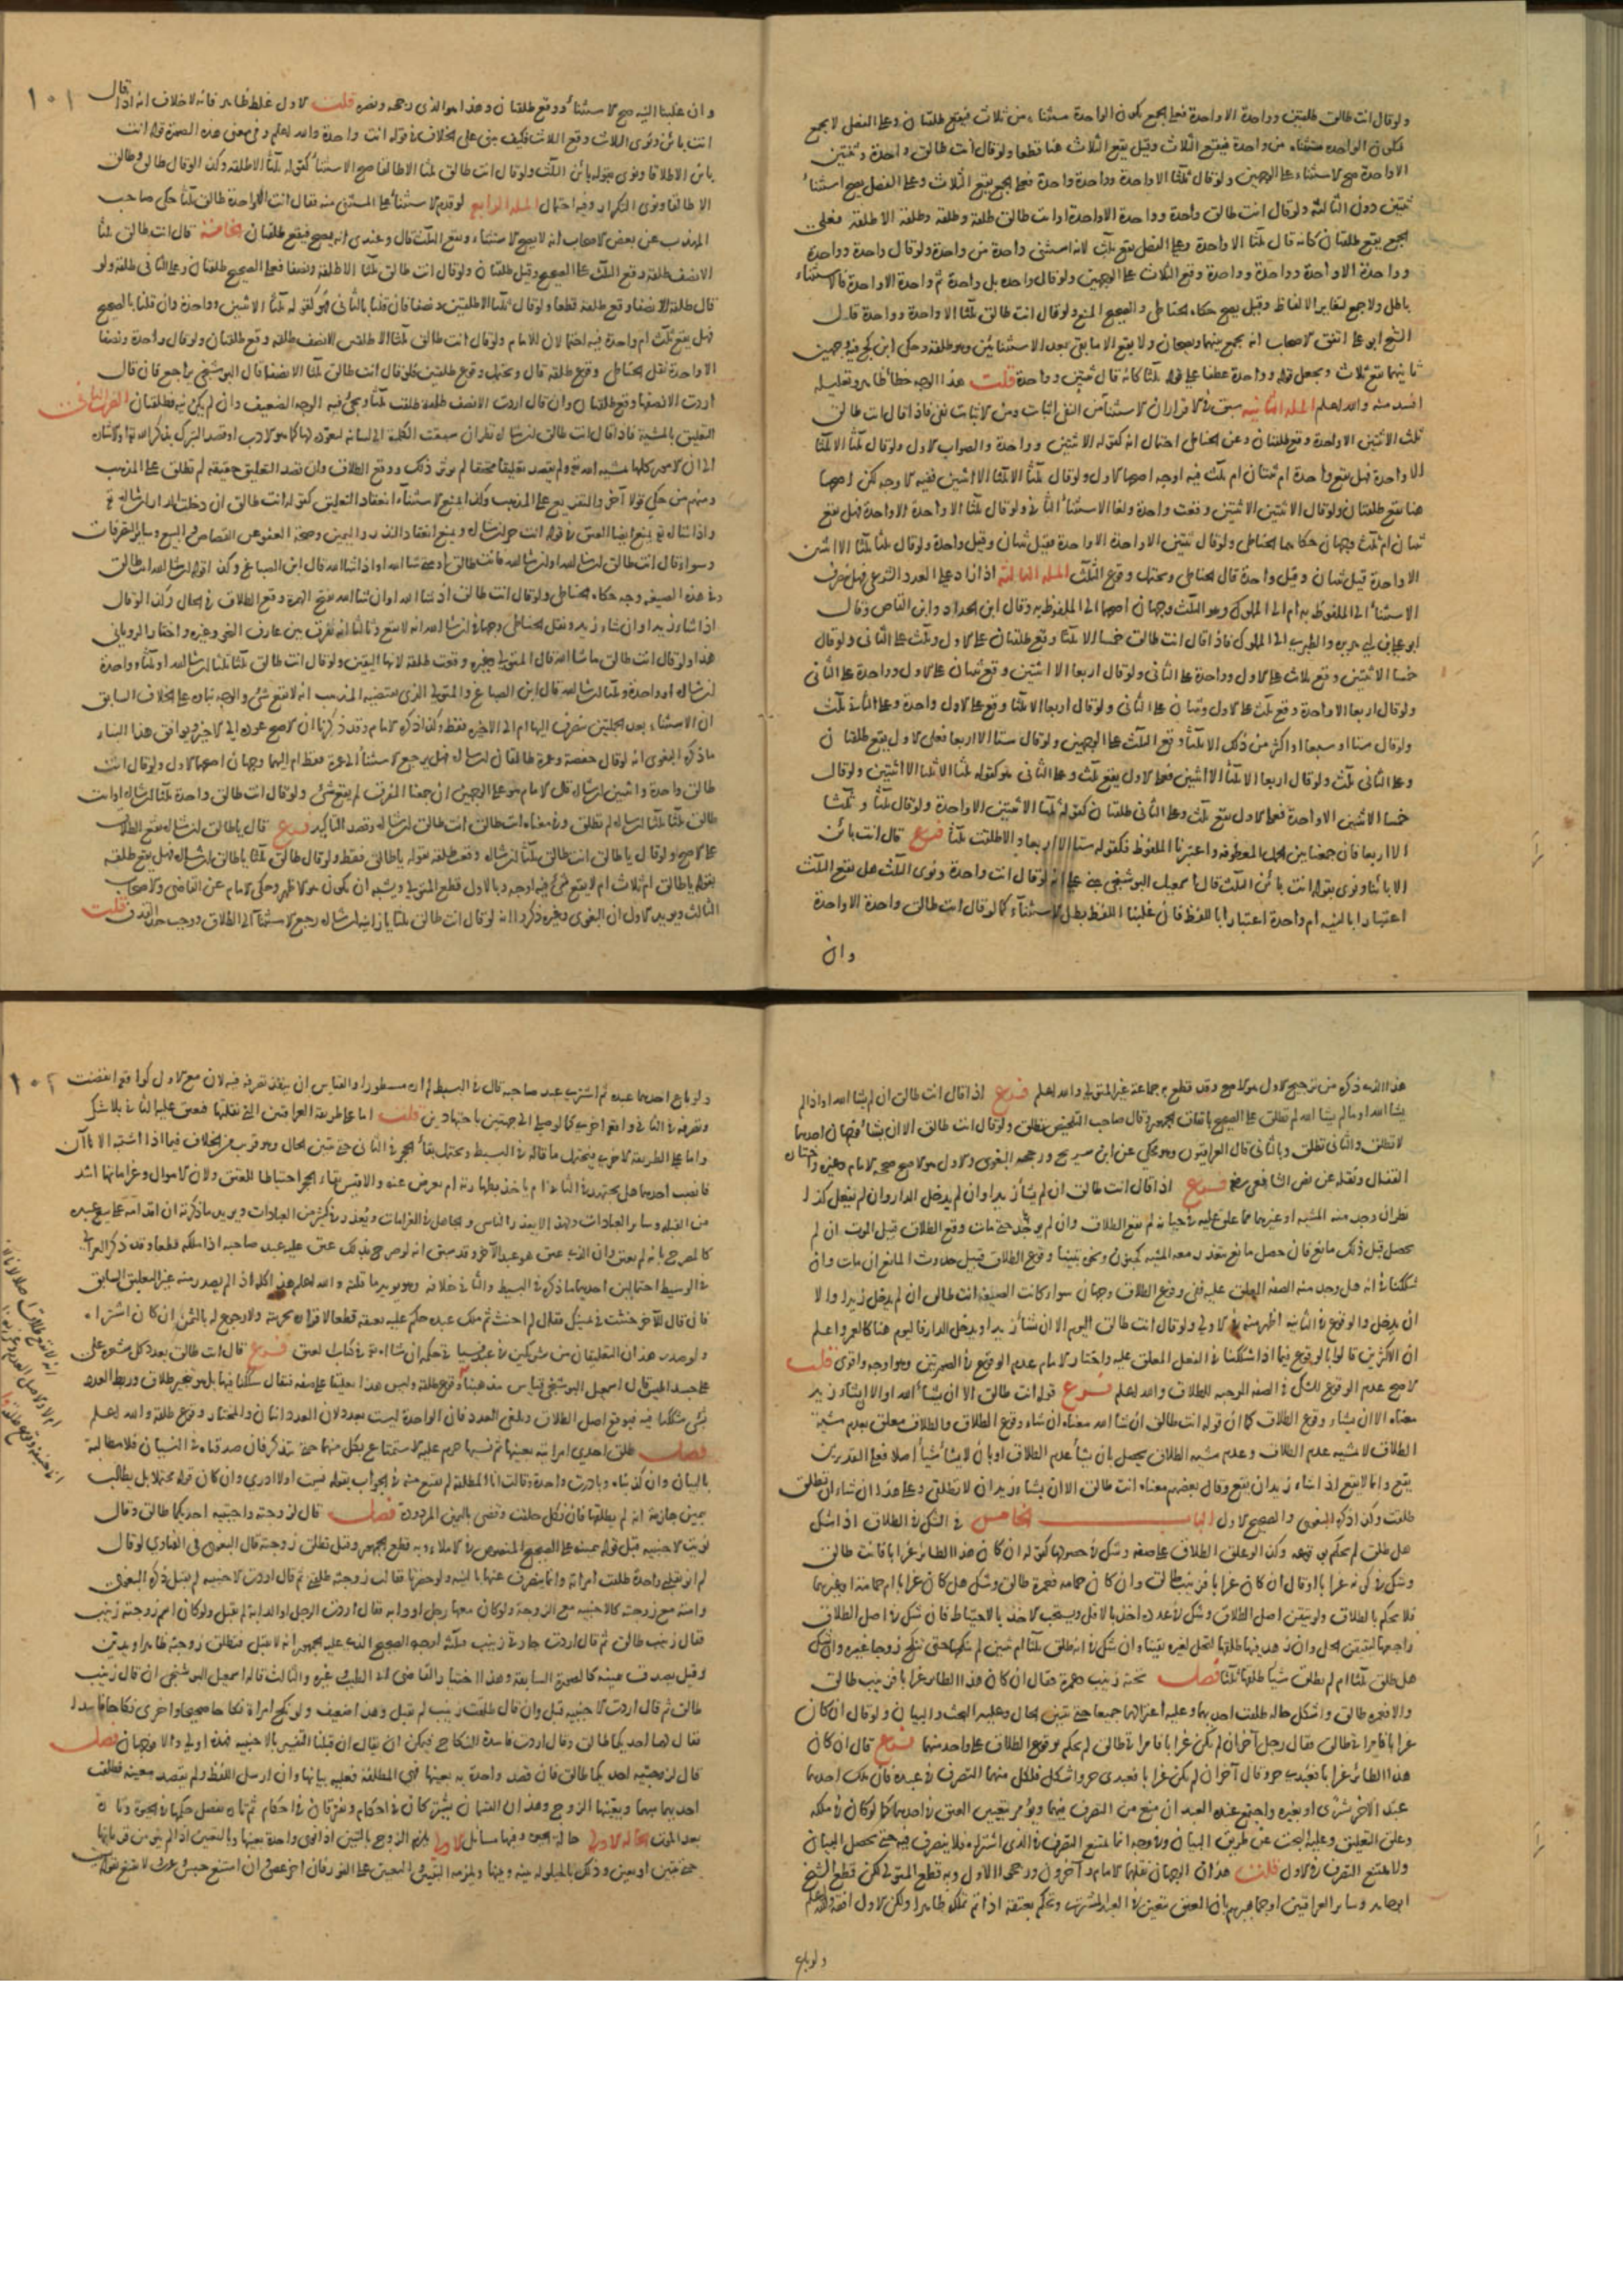 ولو قال انت طالق طلقتين وواحدة الا واحدة فعلى الجمع تكون الواحدة مستثناة من ثلاث فيقع طلقتان وعلى الفصل لا يجمع
فتكون الواحدة مستثناة من واحدة فيقع الثلاث وقيل يقع الثلاث هنا قطعا ولو قال انت طالق واحدة وثنتين
الا واحدة صح الاستثناء على الوجهين ولو قال ثلثا الا واحدة وواحدة وواحدة فعلى الجمع يقع الثلاث وعلى الفصل يصح استثناء
ثنتين دون الثالثة ولو قال انت طالق واحدة وواحدة وواحدة الا واحدة او انت طالق طلقة وطلقة وطلقة الا طلقة فعلى
الجمع يقع طلقتان كانه قال ثلثا الا واحدة وعلى الفصل يقع ثلث لانه استثنى واحدة من واحدة ولو قال واحدة وواحدة
وواحدة الا واحدة وواحدة وواحدة وقع الثلاث على الوجهين ولو قال واحدة بل واحدة ثم واحدة الا واحدة فالاستثناء
باطل ولا جمع لتغاير الالفاظ وقيل يصح حكاه الحناطي والصحيح المنع ولو قال انت طالق ثلثا الا واحدة وواحدة قال
الشيخ ابو علي اتفق الاصحاب انه يجمع بينهما ويصحان ولا يقع الا ما بقي بعد الاستثنائين وهو طلقة وحكى ابن كج فيه وجهين
ثانيهما يقع ثلاث ويجعل قوله وواحدة عطفا على قوله ثلثا كانه قال ثنتين وواحدة قلت هذا الوجه خطأ ظاهر وتعليله
افسد منه والله اعلم المسلة الثانية سبق في الاقرار ان الاستثناء من النفي اثبات ومن الاثبات نفي فاذا قال انت طالق
ثلث الا ثنتين الا واحدة وقع طلقتان وعن الحناطي احتمال انه كقوله الا ثنتين وواحدة والصواب الاول ولو قال ثلثا الا ثلثا
الا واحدة فهل يقع واحدة ام ثنتان ام ثلث فيه اوجه اصحها الاول ولو قال ثلثا الا ثلثا الا اثنين ففيه الاوجه لكن اصحها
هنا يقع طلقتان ولو قال الا ثنتين الا ثنتين وقعت واحدة ولغا الاستثناء الثاني ولو قال ثلثا الا واحدة الا واحدة فهل يقع
ثنتان ام ثلث وجهان حكاهما الحناطي ولو قال ثنتين الا واحدة الا واحدة فقيل ثنتان وقيل واحدة ولو قال ثلثا الا اثنتين
الا واحدة قيل ثنتان وقيل واحدة قال الحناطي ويحتمل وقوع الثلث المسلة الثالثة اذا زاد على العدد الشرعي فهل ينصرف
الاستثناء الى الملفوظ به ام الى المملوك وهو الثلث وجهان اصحهما الى الملفوظ به وقال ابن الحداد وابن القاص وقال
ابو علي بن ابي هريرة والطبري الى المملوك فاذا قال انت طالق خمسا الا ثلثا وقع طلقتان على الاول وثلث على الثاني ولو قال
خمسا الا ثنتين وقع ثلاث على الاول وواحدة على الثاني ولو قال اربعا الا اثنتين وقع ثنتان على الاول وواحدة على الثاني
ولو قال اربعا الا واحدة وقع ثلث على الاول وثنتان على الثاني ولو قال اربعا الا ثلثا وقع على الاول واحدة وعلى الثاني ثلث
ولو قال ستا او سبعا او اكثر من ذلك الا ثلثا وقع الثلث على الوجهين ولو قال ستا الا اربعا فعلى الاول يقع طلقتان
وعلى الثاني ثلث ولو قال اربعا الا ثلثا الا اثنين فعلى الاول يقع ثلث وعلى الثاني هو كقوله ثلثا الا ثلثا الا اثنتين ولو قال
خمسا الا ثنتين الا واحدة فعلى الاول يقع ثلث وعلى الثاني طلقتان كقوله ثلثا الا ثنتين الا واحدة ولو قال ثلثا وثلثا
الا اربعا فان جمعنا بين الجمل المعطوفة واعتبرنا الملفوظ فكقوله ستا الا اربعا والا طلقت ثلثا فرع قال انت بائن
الا بائنا ونوى بقوله انت بائن الثلث قال اسمعيل البوشنجي ينبني على انه لو قال انت واحدة ونوى الثلث هل يقع الثلث
اعتبارا بالنية ام واحدة اعتبارا باللفظ فان غلبنا اللفظ بطل الاستثناء كما لو قال انت طالق واحدة الا واحدة
وان
١٠١
وان غلبنا النية صح الاستثناء ووقع طلقتان وهذا هو الذي رجحه ونصره قلت الاول غلط ظاهر فانه لا خلاف انه اذا قال
انت بائن ونوى الثلاث وقع الثلاث فكيف يبنى على الخلاف في قوله انت واحدة والله اعلم وفي معنى هذه الصورة قوله انت
بائن الا طالقا ونوى بقوله بائن الثلث ولو قال انت طالق ثلثا الا طالقا صح الاستثناء كقوله ثلثا الا طلقة وكذا لو قال طالق وطالق
الا طالقا ونوى التكرار وفيه احتمال المسلة الرابعة لو قدم الاستثناء على المستثنى منه فقال انت الا واحدة طالق ثلثا حكى صاحب
المهذب عن بعض الاصحاب انه لا يصح الاستثناء ويقع الثلث قال وعندي انه يصح فيقع طلقتان الخامسة قال انت طالق ثلثا
الا نصف طلقة وقع الثلث على الصحيح وقيل طلقتان ولو قال انت طالق ثلثا الا طلقة ونصفا فعلى الصحيح طلقتان وعلى الثاني طلقة ولو
قال طلقة الا نصفا وقع طلقة قطعا ولو قال ثلثا الا طلقتين ونصفا فان قلنا بالثاني فهو كقوله ثلثا الا اثنتين وواحدة وان قلنا بالصحيح
فهل يقع ثلث ام واحدة فيه احتمالان للامام ولو قال انت طالق ثلثا الا طلقتين الا نصف طلقة وقع طلقتان ولو قال واحدة ونصفا
الا واحدة نقل الحناطي وقوع طلقة قال ويحتمل وقوع طلقتين فلو قال انت طالق ثلثا الا نصفا قال البوشنجي يراجع فان قال
اردت الا نصفها وقع طلقتان وان قال اردت الا نصف طلقة طلقت ثلثا ويجئ فيه الوجه الضعيف وان لم يكن نية فطلقتان الضرب الثاني
التعليق بالمشية فاذا قال انت طالق ان شا الله نظر ان سبقت الكلمة الى لسانه لتعوده لها كما هو الادب او قصد التبرك بذكر الله تعالى او الاشارة
الى ان الامور كلها بمشية الله تعالى ولم يقصد تعليقا محققا لم يوثر ذلك ووقع الطلاق وان قصد التعليق حقيقة لم تطلق على المذهب
ومنهم من حكى قولا اخر والتفريع على المذهب وكذا يمنع الاستثناء انعقاد التعليق كقوله انت طالق ان دخلت الدار ان شا الله تعالى
واذا شا الله تعالى يمنع ايضا العتق في قوله انت حر ان شا الله ويمنع انعقاد النذر واليمين وصحة العفو عن القصاص والبيع وساير التصرفات
وسواء قال انت طالق ان شا الله او ان شا الله فانت طالق او متى شا الله او اذا شا الله قال ابن الصباغ وكذا اقوله ان شا الله انت طالق
وفي هذه الصيغة وجه حكاه الحناطي ولو قال انت طالق اذ شا الله او ان شا الله بفتح الهمزة وقع الطلاق في الحال وكذا لو قال
اذ شاء زيد او ان شاء زيد ونقل الحناطي وجها في ان شا الله انه لا يقع وثالثا انه يفرق بين عارف النحو وغيره واختاره الروياني
هذا ولو قال انت طالق ما شا الله قال المتولي وغيره وقوع طلقة لانها اليقين ولو قال انت طالق ثلثا وثلثا ان شا الله او ثلثا وواحدة
ان شا الله او واحدة وثلثا ان شا الله قال ابن الصباغ والمتولي الذي يقتضيه المذهب انه لا يقع شئ والوجه بناؤه على الخلاف السابق
ان الاستثناء بعد الجملتين ينصرف اليهما ام الى الاخيرة فقط وكذا ذكره الامام وقد ذكرنا ان الاصح عوده الى الاخير ويوافق هذا البناء
ما ذكره البغوي انه لو قال حفصة وعمرة طالقتان ان شا الله هل يرجع الاستثناء الى عمرة فقط ام اليهما وجهان اصحهما الاول ولو قال انت
طالق واحدة واثنتين ان شا الله قال الامام هو على الوجهين ان جمعنا المفرق لم يقع شئ ولو قال انت طالق واحدة ثلثا ان شا الله او انت
طالق ثلثا ثلثا ان شا الله لم تطلق وفي معناه انت طالق انت طالق ان شا الله وقصد التاكيد فرع قال يا طالق ان شا الله يقع الطلاق
على الاصح ولو قال يا طالق انت طالق ثلثا ان شا الله وقعت طلقة بقوله يا طالق فقط ولو قال طالق ثلثا يا طالق ان شا الله فهل يقع طلقة
بقوله يا طالق ام ثلاث ام لا يقع شئ فيه اوجه وبالاول قطع المتولي ويشبه ان يكون هو الاظهر وحكى الامام عن القاضي والاصحاب
الثالث ويويد الاول ان البغوي وغيره ذكروا انه لو قال انت طالق ثلثا يا زانية ان شا الله رجع الاستثناء الى الطلاق ووجب حد القذف قلت
هذا الذي ذكره من ترجيح الاول هو الاصح وقد قطع به جماعة غير المتولي والله اعلم فرع اذا قال انت طالق ان لم يشا الله او اذا لم
يشا الله او ما لم يشا الله لم تطلق على الصحيح باتفاق الجمهور وقال صاحب التلخيص تطلق ولو قال انت طالق الا ان يشاء الله فوجهان احدهما
لا تطلق والثاني تطلق وبالثاني قال العراقيون وهو محكي عن ابن سريج ورجحه البغوي والاول هو الاصح صححه الامام وغيره واختاره
القفال ونقله عن نص الشافعي رضي فرع اذا قال انت طالق ان لم يشأ زيد او ان لم يدخل الدار وان لم يفعل كذا
نظر ان وجد منه المشية او غيرها مما علق عليه في حياته لم يقع الطلاق وان لم يوجد حتى مات وقع الطلاق قبيل الموت ان لم
يحصل قبل ذلك مانع فان حصل مانع يتعذر معه المشية كجنون ونحوه تبينا وقوع الطلاق قبيل حدوث المانع ان مات وان
شككنا في انه هل وجد منه الصفة المعلق عليه ففي وقوع الطلاق وجهان سواء كانت الصيغة انت طالق ان لم يدخل زيد او الا
ان يدخل والوقوع في الثانية اظهر منه في الاولى ولو قال انت طالق اليوم الا ان يشاء زيد او يدخل الدار فاليوم هنا كالعمر واعلم
ان الاكثرين قالوا بالوقوع فيما اذا شككنا في الفعل المعلق عليه واختار الامام عدم الوقوع في الصورتين وهو اوجه واقوى قلت
الاصح عدم الوقوع للشك في الصفة الموجبة للطلاق والله اعلم فرع قوله انت طالق الا ان يشاء الله او الا ان يشاء زيد
معناه الا ان يشاء وقوع الطلاق كما ان قوله انت طالق ان شا الله معناه ان شاء وقوع الطلاق والطلاق معلق بعدم مشية
الطلاق لا مشية عدم الطلاق وعدم مشية الطلاق يحصل بان يشاء عدم الطلاق او بان لا يشاء شيا اصلا فعلى التقديرين
يقع وانما لا يقع اذا شاء زيد ان يقع وقال بعضهم معناه انت طالق الا ان يشاء زيد ان لا تطلقي وعلى هذا ان شاء ان تطلق
طلقت وكذا ذكره البغوي والصحيح الاول الباب الخامس في الشك في الطلاق اذا شك
هل طلق لم يحكم بوقوعه وكذا لو علق الطلاق على صفة وشك في حصولها كقوله ان كان هذا الطائر غرابا فانت طالق
وشك في كونه غرابا او قال ان كان غرابا فزينب طالق وان كان حمامة فعمرة طالق وشك هل كان غرابا ام حمامة او غيرهما
فلا يحكم بالطلاق ولو تيقن اصل الطلاق وشك في عدده اخذ بالاقل ويستحب الاخذ بالاحتياط فان شك في اصل الطلاق
راجعها ليتيقن الحل وان زهد فيها طلقها لتحل لغيره يقينا وان شك في انه طلق ثلثا ام ثنتين لم ينكحها حتى تنكح زوجا غيره وان شك
هل طلق ثلثا ام لم يطلق شيا طلقها ثلثا فصل تحته زينب وعمرة فقال ان كان هذا الطائر غرابا فزينب طالق
والا فعمرة طالق واشكل حاله طلقت احديهما وعليه اعتزالهما جميعا حتى يتبين الحال وعليه البحث والبيان ولو قال ان كان
غرابا فامراتي طالق فقال رجل اخر ان لم يكن غرابا فامراتي طالق لم يحكم بوقوع الطلاق على واحد منهما فرع قال ان كان
هذا الطائر غرابا فعبدي حر وقال اخر ان لم يكن غرابا فعبدي حر واشكل فلكل منهما التصرف في عبده فان ملك احدهما
عبد الاخر بشرى او بغيره واجتمع عنده العبدان منع من التصرف فيهما ويومر بتعيين العتق في احدهما كما لو كان في ملكه
وعلق التعليق وعليه البحث عن طريق البيان وفي وجه انما يمتنع التصرف في الذي اشتراه فلا يتصرف فيه حتى يحصل البيان
ولا يمتنع التصرف في الاول قلت هذان الوجهان نقلهما الامام واخرون ورجحوا الاول وبه قطع المتولي لكن قطع الشيخ
ابو حامد وساير العراقيين او جماهيرهم بان العتق يتعين في العبد المشترى ويحكم بعتقه اذا تم تملكه ظاهرا ولكن الاول افقه والله اعلم
ولو باع
١٠٢
ولو باع احدهما عبده ثم اشترى عبد صاحبه قال في البسيط لم اره مسطورا والقياس ان ينفذ تصرفه فيه لان بيع الاول كواقعة انقضت
وتصرفه في الثاني واقعة اخرى كما لو صلى الى جهتين باجتهادين قلت اما على طريقة العراقيين التي نقلتها فيعتق عليه الثاني بلا شك
واما على الطريقة الاخرى فيحتمل ما قاله في البسيط ويحتمل بقاء الحجر في الثاني حتى يتبين الحال وهو قريب من الخلاف فيما اذا اشتبه الاناآن
فانصب احدهما هل يجتهد في الثاني ام ياخذ بطهارته ام يعرض عنه والاقيس بقاء الحجر احتياطا للعتق ولان الاموال وغراماتها اشد
من القبلة وساير العبادات ولهذا لا يعذر الناسي والجاهل في الغرامات ويعذر في كثير من العبادات ويويد ما ذكرته ان اقدامه على بيع عبده
كالمصرح بانه لم يعتق وان الذي عتق هو عبد الاخر وقد سبق انه لو صرح بذلك عتق عليه عبد صاحبه اذا ملكه قطعا وقد ذكر الغزالي
في الوسيط احتمالين احدهما ما ذكره في البسيط والثاني خلافه وهو يويد ما قلته والله اعلم هذا كله اذا لم يصدر منه غير التعليق السابق
فان قال للاخر حنثت في يمينك فقال لم احنث ثم ملك عبده حكم عليه بعتقه قطعا لاقراره بحريته ولا رجوع له بالثمن ان كان اشتراه
ولو صدر هذان التعليقان من شريكين في عبد فسياتي حكمه ان شا الله تعالى في كتاب العتق فرع قال انت طالق بعدد كل شعرة على
جسد ابليس قال اسمعيل البوشنجي قياس مذهبنا وقوع طلقة وليس هذا تعليقا على صفة فيقال شككنا فيها بل هو تنجيز طلاق وربط العدد
بشئ شككنا فيه فيوقع اصل الطلاق ويلغى العدد فان الواحدة ليست بعدد لان العدد اثنان والمختار وقوع طلقة والله اعلم
فصل طلق احدى امراتيه بعينها ثم نسيها حرم عليه الاستمتاع بكل منهما حتى يتذكر فان صدقتاه في النسيان فلا مطالبة
بالبيان وان كذبتاه وبادرت واحدة وقالت انا المطلقة لم يقنع منه في الجواب بقوله نسيت او لا ادري وان كان قوله محتملا بل يطالب
بيمين جازمة انه لم يطلقها فان نكل حلفت وقضى باليمين المردودة فصل قال لزوجته واجنبية احديكما طالق وقال
نويت الاجنبية قبل قوله بيمينه على الصحيح المنصوص في الاملاء وبه قطع الجمهور وقيل تطلق زوجته قال البغوي في الفتاوي لو قال
لم انو بقلبي واحدة طلقت امراته وانما ينصرف عنها بالنية ولو حضرتا فقالت زوجته طلقني ثم قال اردت الاجنبية لم يقبل ذكره البغوي
وامته مع زوجته كالاجنبية مع الزوجة ولو كان معها رجل او دابة فقال اردت الرجل او الدابة لم يقبل ولو كان اسم زوجته زينب
فقال زينب طالق ثم قال اردت جارتي زينب فثلثة اوجه الصحيح الذي عليه الجمهور انه لا يقبل فتطلق زوجته ظاهرا ويدين
وقيل يصدق بيمينه كالصورة السابقة وهذا اختيار القاضي ابي الطيب وغيره والثالث قاله اسمعيل البوشنجي ان قال زينب
طالق ثم قال اردت الاجنبية قبل وان قال طلقت زينب لم يقبل وهذا ضعيف ولو نكح امراة نكاحا صحيحا واخرى نكاحا فاسدا
فقال لهما احديكما طالق وقال اردت فاسدة النكاح فيمكن ان يقال ان قبلنا التفسير بالاجنبية فهذه اولى والا فوجهان فصل
قال لزوجتيه احديكما طالق فان قصد واحدة بعينها فهي المطلقة فعليه بيانها وان ارسل اللفظ ولم يقصد معينة طلقت
احديهما مبهما ويعينها الزوج وهذان القسمان يشتركان في احكام ويفترقان في احكام ثم تارة يفصل حكمها في الحيوة وتارة
بعد الموت الحالة الاولى حالة الحيوة وفيها مسائل الاولى يلزم الزوج بالتبيين اذا نوى واحدة بعينها وبالتعيين اذا لم ينو من قربانهما
حتى يتبين او يعين وذلك بالحيلولة بينه وبينهما ويلزمه التبيين او التعيين على الفور فان اخر عصى وان امتنع حبس وعزر ولا يقنع بقوله